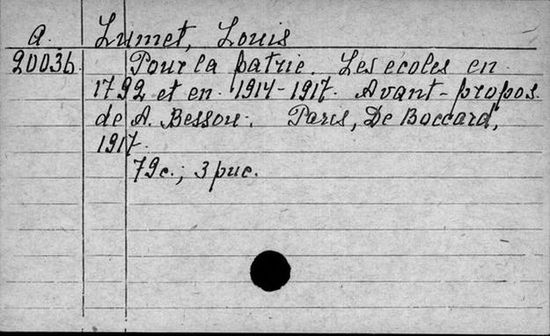 a. Lumet, Louis
20036. Pour la patrie. Les ecoles en
1792 et en 1914-1917. Avant-propos
de A. Besson. Paris, De Boccard,
1917.
79c.; 3 рис.